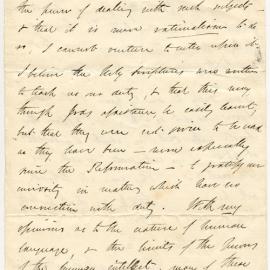 the power of dealing with such subjects -
& that it is mere rationalism to do
so, I cannot venture to enter upon it.
I believe the Holy Scriptures were written
to teach us our duty, & that this may
through God's assistance be easily learnt,
but that they were not given to be read
as they have been - more especially
since the Reformation - to gratify our
curiosity in matters which have no
connection with duty. With my
opinions as to the nature of human
language, & the limits of the powers
of the human intellect, many of these